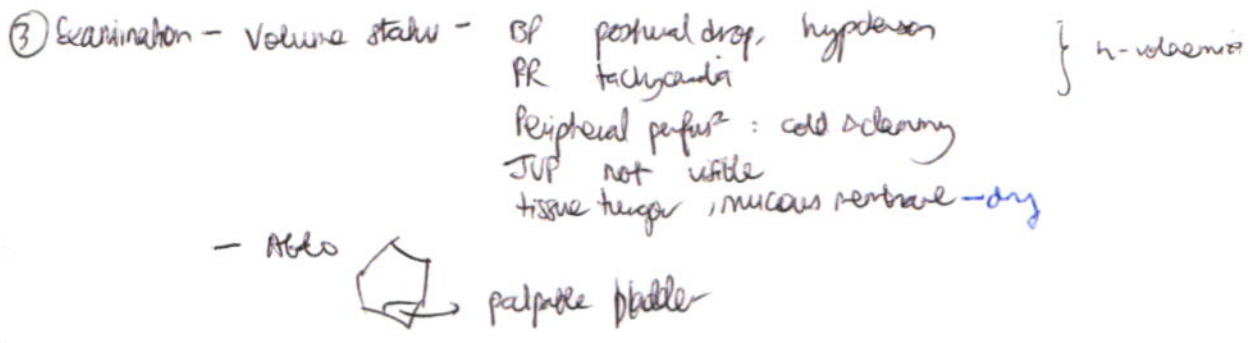 ③ Examination - Volume status - BP postural drop, hypotension } h-volaemia
PR tachycardia
Peripheral perfusⁿ : cold & clammy
JVP not visible
tissue turgor, mucous membrane - dry
- Abdo palpable bladder